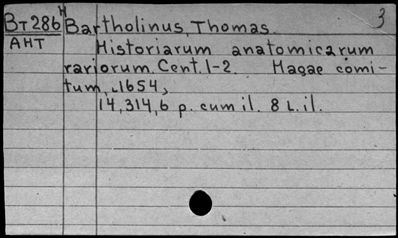 BT286 H Bartholinus, Thomas. 3
AHT Historiarum anatomicarum
rariorum. Cent. 1-2. Hagae comi-
tum, 1654,
14, 314, 6 p. cum il. 8 L. il.